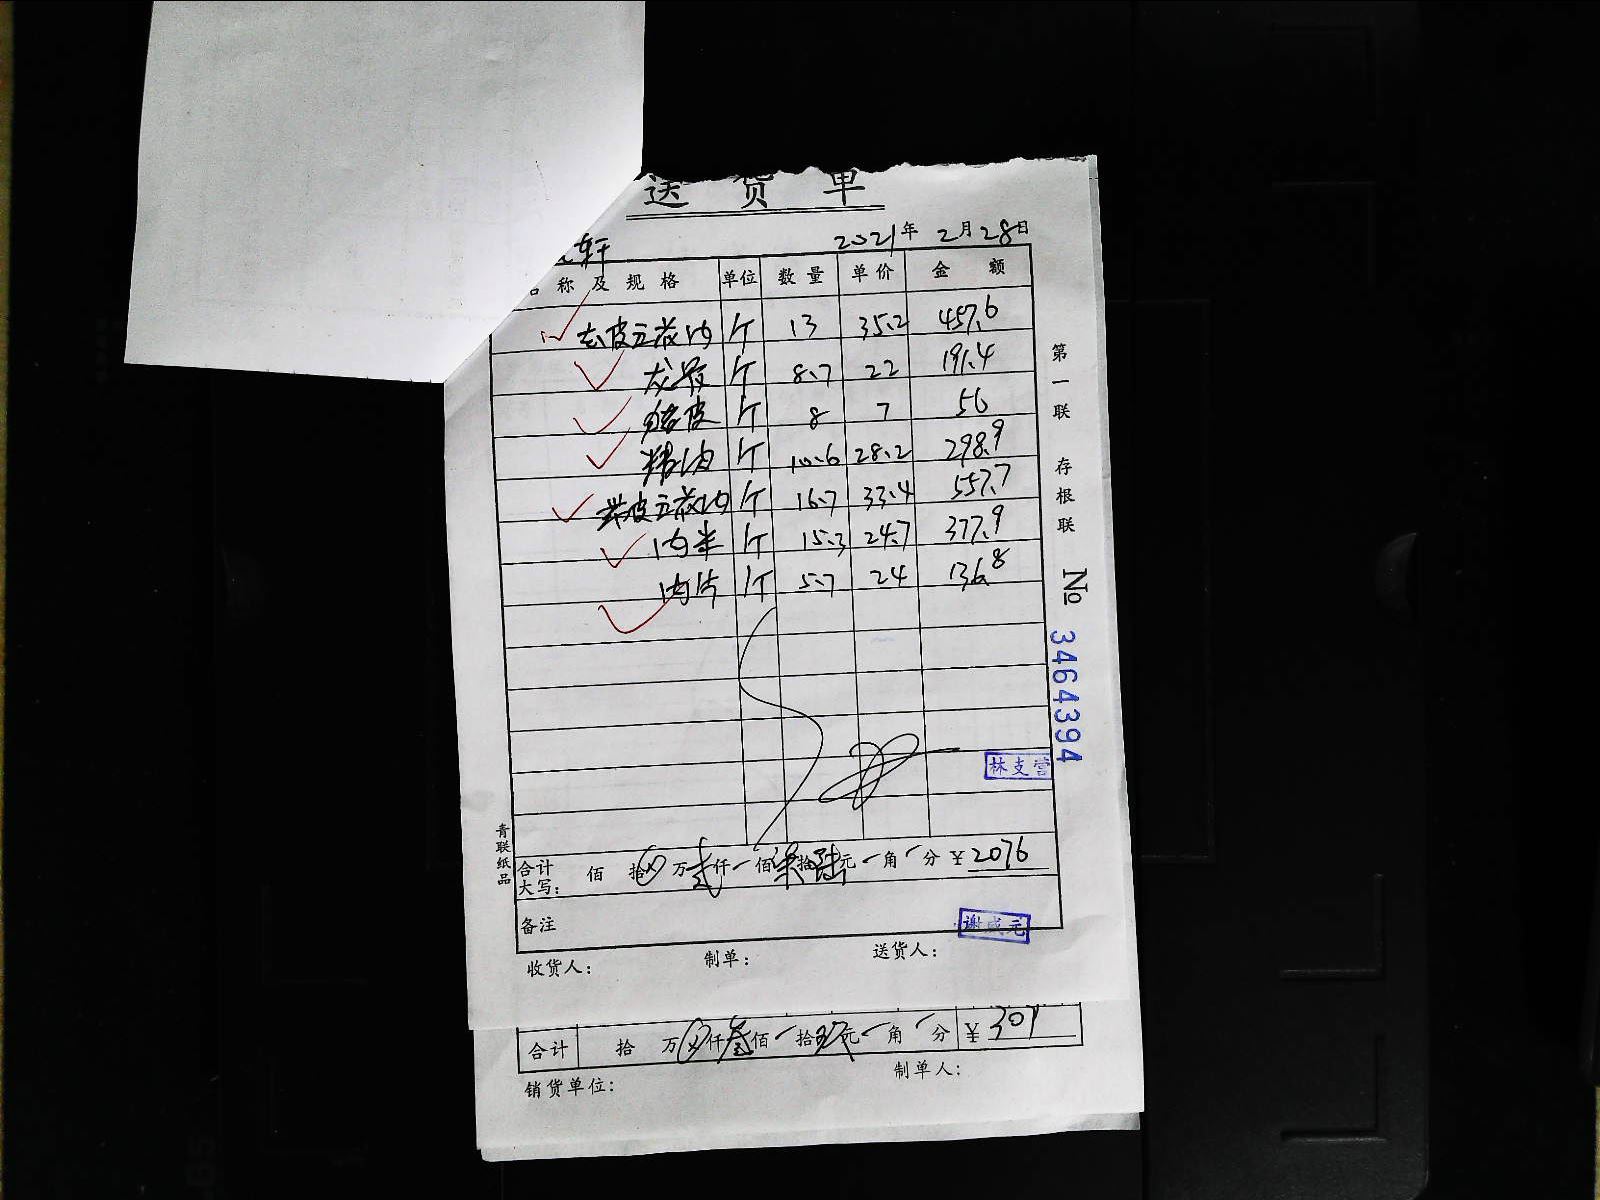 送货单
轩
2021年2月28日
名称及规格 单位 数量 单价 金额
去皮五花肉 斤 13 35.2 457.6
龙骨 斤 8.7 22 191.4
猪皮 斤 8 7 56
精肉 斤 10.6 28.2 298.9
带皮五花肉 斤 16.7 33.4 557.7
肉半 斤 15.3 24.7 377.9
肉片 斤 5.7 24 136.8
林支营
合计大写: 佰 拾 万 贰仟 佰 柒拾 陆元 角 分 ¥2076
备注
谢成元
收货人: 制单: 送货人:
第一联 存根联
No 3464394
青联纸品
合计 拾 万 仟 叁佰 拾 元 角 分 ¥ 309
销货单位: 制单人: